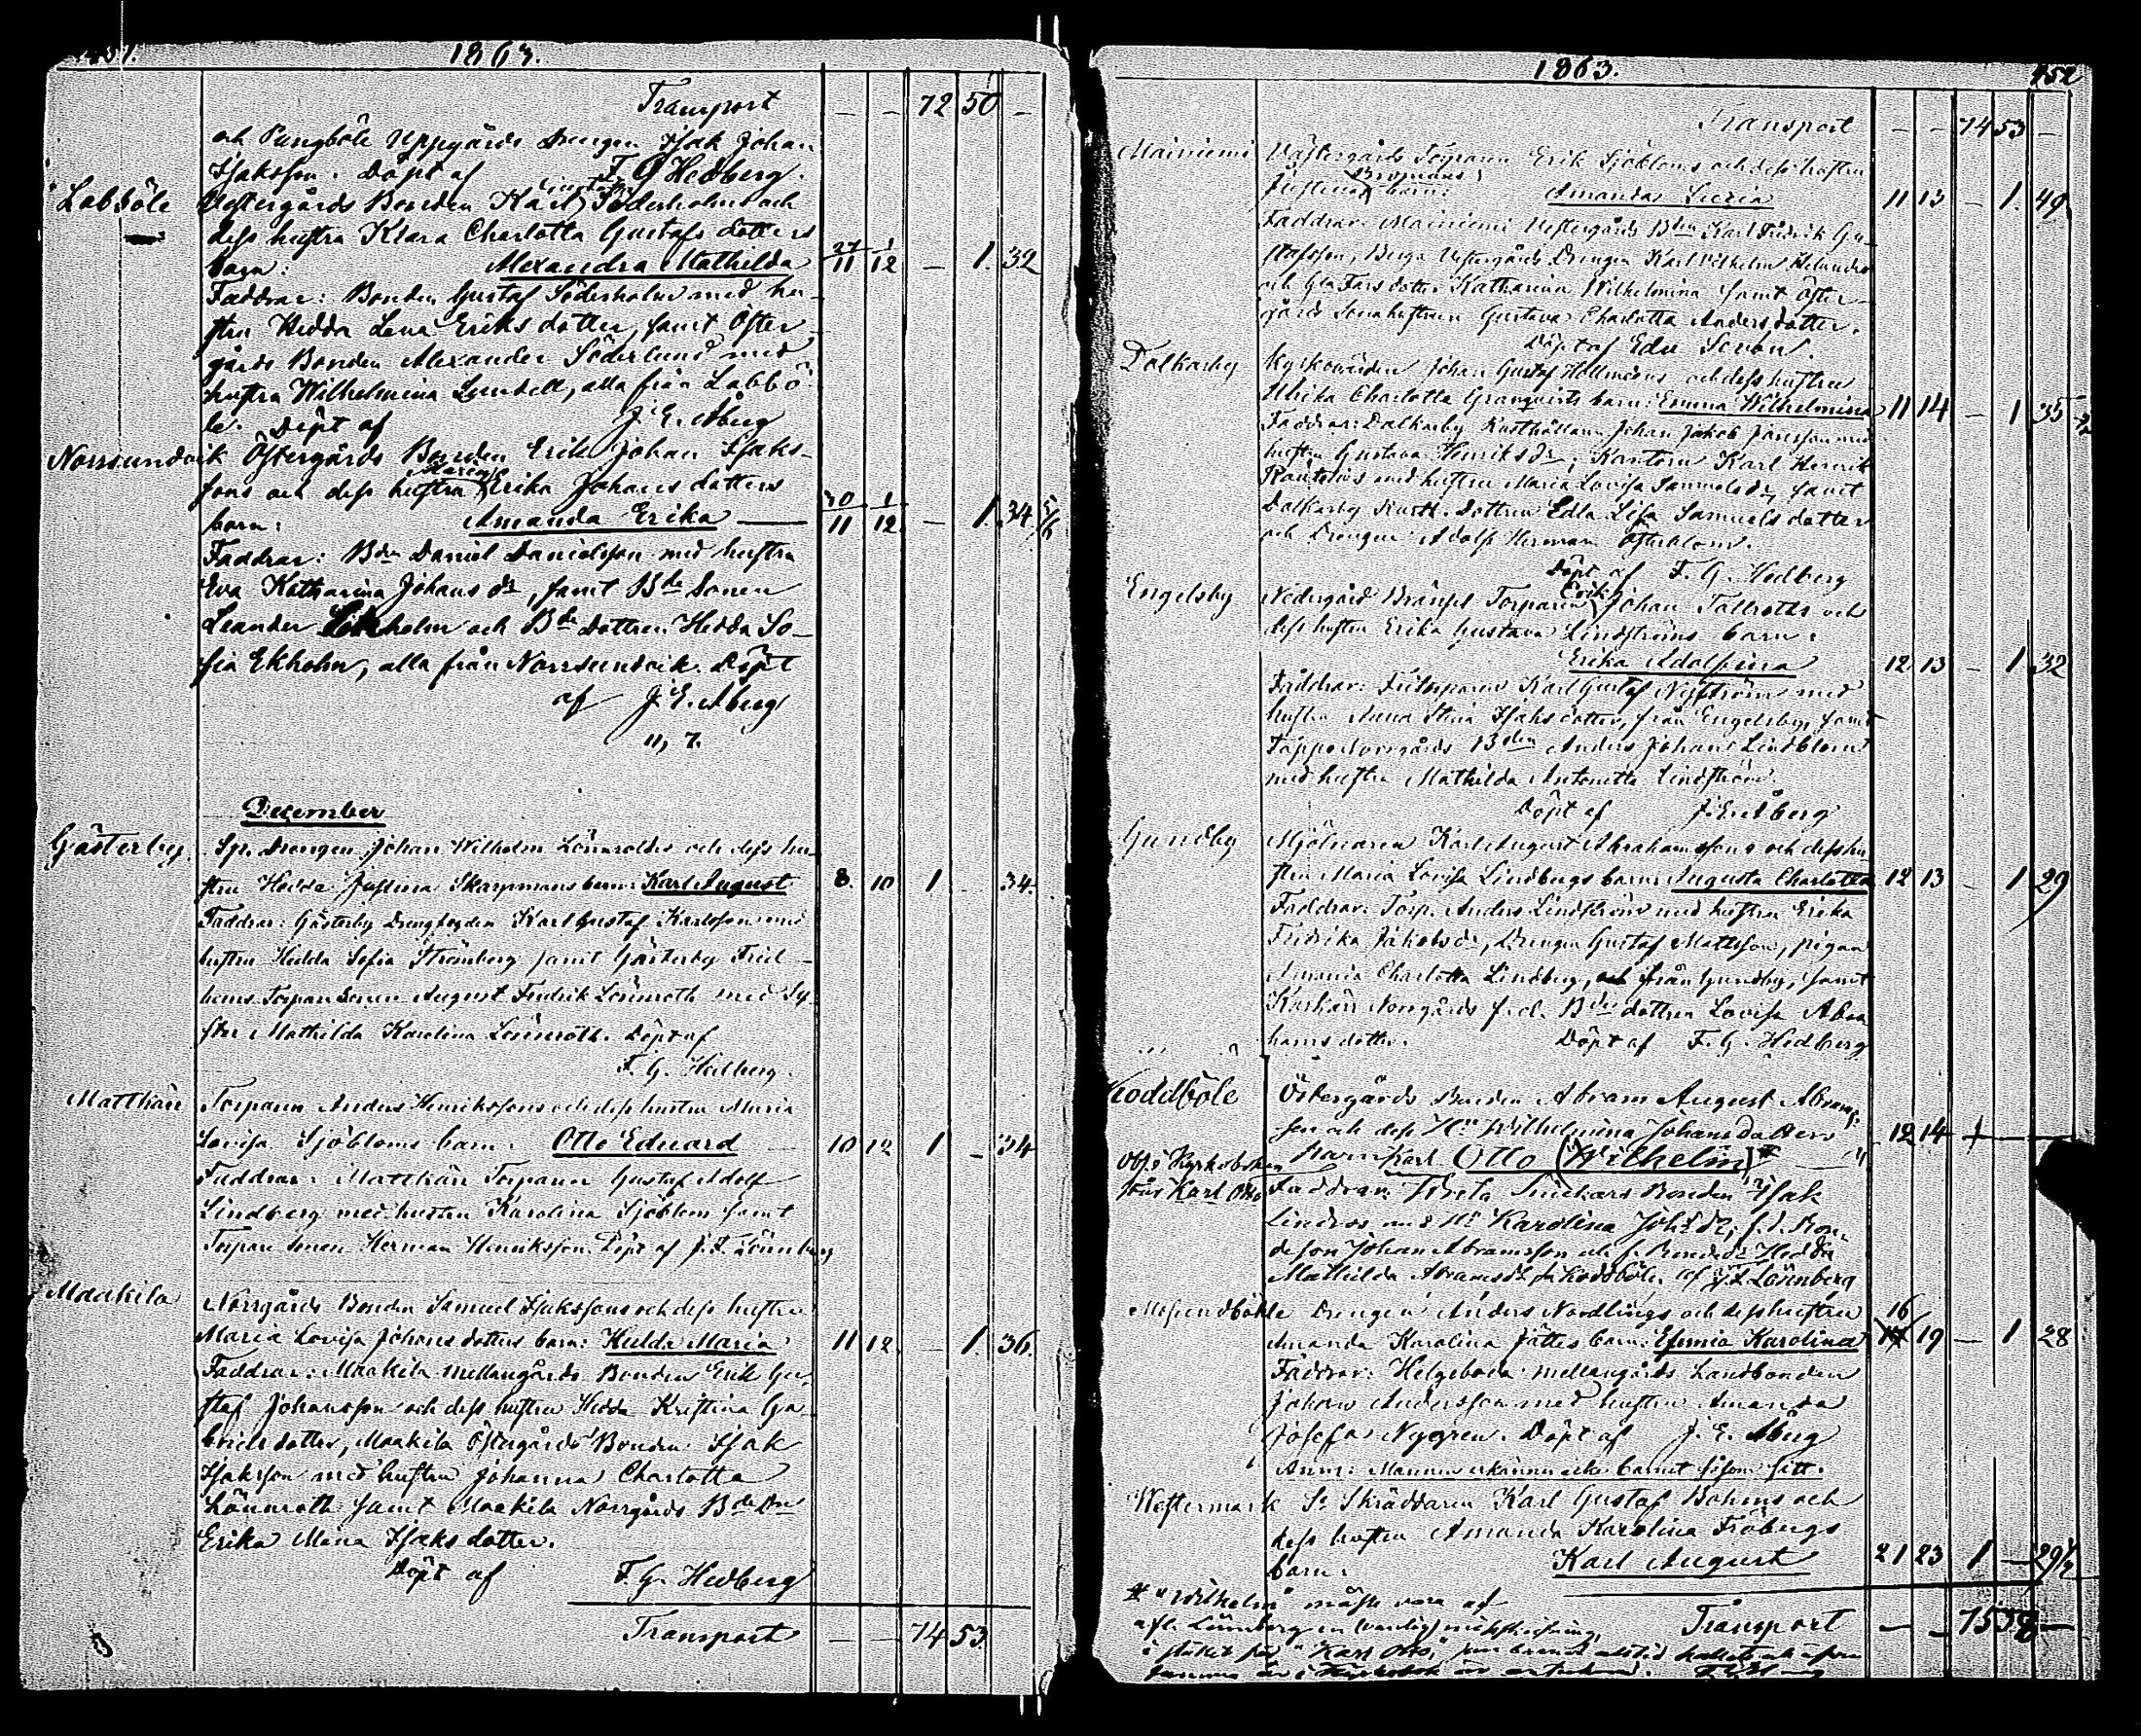 451.
1863.
Transport — — 72 50 —
och Pungböle Uppgårds Drengen Isak Johan
Isaksson. Döpt af F. G. Hedberg.
Labböle Westergårds Bonden Karl Gustaf Söderholms och
dess hustru Klara Charlotta Gustafs dotters
barn: Alexandra Mathilda 27/11 1/12 — 1. 32
Faddrar: Bonden Gustaf Söderholm med hu-
stru Hedda Lena Eriks dotter, samt Öster-
gårds Bonden Alexander Söderlund med
hustru Wilhelmina Lundell, alla från Labbö-
le. Döpt af J. E. Åberg
Norrsundvik Östergårds Bonden Erik Johan Isaks-
sons och dess hustru Maria Erika Johans dotters
barn: Amanda Erika — 30/11 1/12 — 1. 34 5/6
Faddrar: Bdn Daniel Danielsson med hustru
Eva Katharina Johans dr, samt Bde Sonen
Leander holm och Bde dottren Hedda So-
fia Ekholm, alla från Norrsundvik. Döpt
af J. E. Åberg
11, 7.
December
Gästerby. Sp. Drengen Johan Wilhelm Lönnroths och dess hu-
stru Hedda Justina Skarpmans barn: Karl August 8. 10 1 — 34.
Faddrar: Gästerby Drengfogden Karl Gustaf Karlsson med
hustru Hedda Sofia Strömberg samt Gästerby Frid-
hems Torpare Sonen August Fredrik Lönnroth med Sy-
ster Mathilda Karolina Lönnroth. Döpt af
F. G. Hedberg.
Matthärr Torparen Anders Henrikssons och dess hustru Maria
Lovisa Sjöbloms barn. Otto Eduard 10 12 1 — 34
Faddrar: Matthärr Torparen Gustaf Adolf
Lindberg med hustru Karolina Sjöblom samt
Torpare Sonen Herman Henriksson. Döpt af J. F. Lönnberg
Maakila Norrgårds Bonden Samuel Isakssons och dess hustru
Maria Lovisa Johans dotters barn: Hulda Maria 11 12. — 1. 36.
Faddrar: Maakila Mellangårds Bonden Erik Gu-
staf Johansson och dess hustru Hedda Kristina Ga-
briels dotter, Maakila Östergårds Bonden Isak
Isaksson med hustru Johanna Charlotta
Lönnroth samt Maakila Norrgårds Bde Dn
Erika Mina Isaks dotter.
Döpt af F. G. Hedberg
Transport — — 74 53.
1863. 452
Transport — — 74 53 —
Mainiemi Västergårds Torparen Erik Sjöbloms och dess hustru
Justina Bromans barn: Amanda Lucia 11 13 — 1. 49
Faddrar: Mainiemi Westergårds Bden Karl Fridrik Gu-
stafsson, Westergårds Drengen Karl Wilhelm Helander
och dotter Katharina Wilhelmina samt Öster-
gårds Sonahustrun Gustava Charlotta Anders dotter.
Döpt af Edv Sevon.
Dalkarby Kyrkovärden Johan Gustaf Hellmans och dess hustru
Ulrika Charlotta Granqvists barn: Emma Wilhelmina 11 14 — 1 35
Faddrar: Dalkarby Rusthållaren Johan Jakob Jansson med
hustru Gustava Henriksdr, Kantorn Karl Henrik
med hustru Maria Lovisa Samuelsdr, samt
Dalkarby Rusth. dottren Edla Lisa Samuels dotter
och Drengen Adolf Herman Österblom.
Döpt af F. G. Hedberg
Engelsby Nedergård Brännsl Torparen Erik Johan Tallroths och
dess hustru Erika Gustava Lindströms barn:
Erika Adolfina 12 13 — 1 32
Faddrar: Karl Gustaf Nyström med
hustru Anna Stina Isaks dotter, från Engelsby, samt
Norrgårds Bden Anders Johan Lindblom
med hustru Mathilda Antonetta Lindström.
Döpt af J. E. Åberg
Gundby Mjölnaren Karl August Abrahamssons och dess hu-
stru Maria Lovisa Lindbergs barn: Augusta Charlotta 12 13 — 1 29
Faddrar: Torp. Anders Lindström med hustru Erika
Fredrika Jakobsdr, Drengen Gustaf Mattsson, pigan
Amanda Charlotta Lindberg, från Gundby, samt
Norrgårds f.d. Bde dottren Lovisa Abra-
hams dotter. Döpt af F. G. Hedberg
Koddböle Östergårds Bonden Abram August Abrams-
son och dess Hu Wilhelmina Johans Dotters 12 14 1 —
Barn Karl Otto (Wilhelm) #
Obs. i Kyrkoboken
står Karl Otto Faddrar: Bonden Isak
Lindros med Hu Karolina Joh: dr, f.d. Bon-
deson Johan Abramsson och f. Bonded: Hedda
Mathilda Abramsdr fr Koddböle. af J. F. Lönnberg
Drengen Anders Nordlings och dess hustru 16
Amanda Karolina Jättes barn: Efemia Karolina 19 — 1 28
Faddrar: Helgeboda Mellangårds Landbonden
Johan Andersson med hustru Amanda
Josefa Nygren. Döpt af J. E. Åberg
Anm: Mannen erkänner icke barnet såsom sitt.
Westermark Sn Skräddaren Karl Gustaf Bohms och
dess hustru Amanda Karolina Fröbergs
barn. Karl August 21 23 1 — 29 1/2
# "Wilhelm" måste vara af
Lönnberg en (vanlig) misskrifning, Transport — — 75 58 —
i stället för "Karl Otto", som barnet alltid kallats och äfven